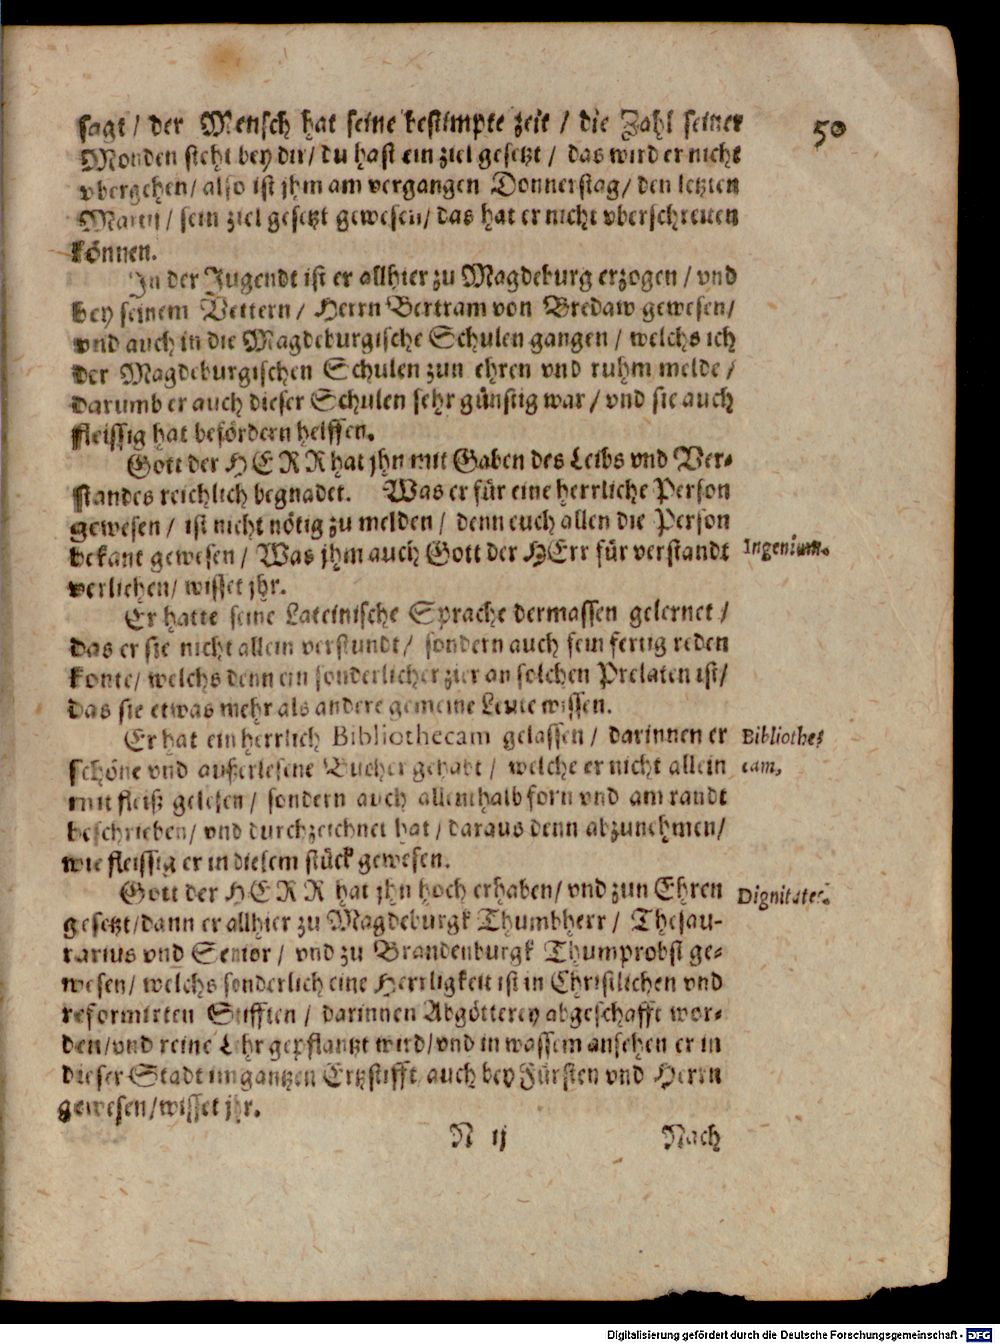 50
sagt / der Mensch hat seine bestimpte zeit / die Zahl seiner
Monden steht bey dir / du hast ein ziel gesetzt / das wird er nicht
vbergehen / also ist jhm am vergangen Donnerstag / den letzten
Martij / sein ziel gesetzt gewesen / das hat er nicht vberschreiten
können.
In der Jugendt ist er allhier zu Magdeburg erzogen / vnd
bey seinem Vettern / Herrn Bertram von Bredaw gewesen /
vnd auch in die Magdeburgische Schulen gangen / welchs ich
der Magdeburgischen Schulen zun ehren vnd ruhm melde /
darumb er auch dieser Schulen sehr günstig war / vnd sie auch
fleissig hat befördern helffen.
Gott der HERR hat jhn mit Gaben des Leibs vnd Ver-
standes reichlich begnadet. Was er für eine herrliche Person
gewesen / ist nicht nötig zu melden / denn euch allen die Person
bekant gewesen / Was jhm auch Gott der HErr für verstandt
Ingenium.
verlichen / wisset jhr.
Er hatte seine Lateinische Sprache dermassen gelernet /
das er sie nicht allein verstundt / sondern auch fein fertig reden
konte / welchs denn ein sonderlicher zier an solchen Prelaten ist /
das sie etwas mehr als andere gemeine Leute wissen.
Er hat ein herrlich Bibliothecam gelassen / darinnen er
Bibliothe-
schöne vnd außerlesene Bücher gehabt / welche er nicht allein
cam.
mit fleiß gelesen / sondern auch allenthalb forn vnd am randt
beschrieben / vnd durchzeichnet hat / daraus denn abzunehmen /
wie fleissig er in diesem stück gewesen.
Gott der HERR hat jhn hoch erhaben / vnd zun Ehren
Dignitates.
gesetzt / dann er allhier zu Magdeburgk Thumbherr / Thesau-
rarius vnd Senior / vnd zu Brandenburgk Thumprobst ge-
wesen / welchs sonderlich eine Herrligkeit ist in Christlichen vnd
reformirten Stifften / darinnen Abgötterey abgeschafft wor-
den / vnd reine Lehr gepflantzt wird / vnd in wassem ansehen er in
dieser Stadt im gantzen Ertzstifft auch bey Fürsten vnd Herrn
gewesen / wisset jhr.
N ij
Nach
Digitalisierung gefördert durch die Deutsche Forschungsgemeinschaft - DFG